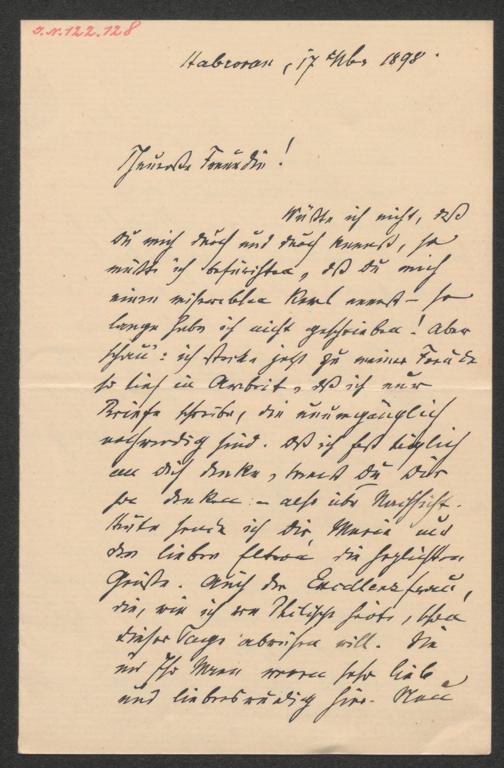 I.N. 122.128
17 1898.
Teuerste Freundin!
Wüßte ich nicht, daß
Du mich durch und durch kennst, so
müßte ich befürchten, daß Du mich
einen miserablen Kerl nennst – so
lange habe ich nicht geschrieben! Aber
schau: ich stecke jetzt zu meiner Freude
so tief in Arbeit, daß ich nur
Briefe schreibe, die unumgänglich
nothwendig sind. Daß ich fast täglich
an Dich denke, kannst Du Dir
ja denken – also übe Nachsicht.
Heute sende ich Dir, Marie und
den lieben Eltern die herzlichsten
Grüße. Auch der Excellenzfrau,
die, wie ich von hörte, schon
dieser Tage abreisen will. Sie
und Ihr Mann waren sehr lieb
und liebenswürdig hier.